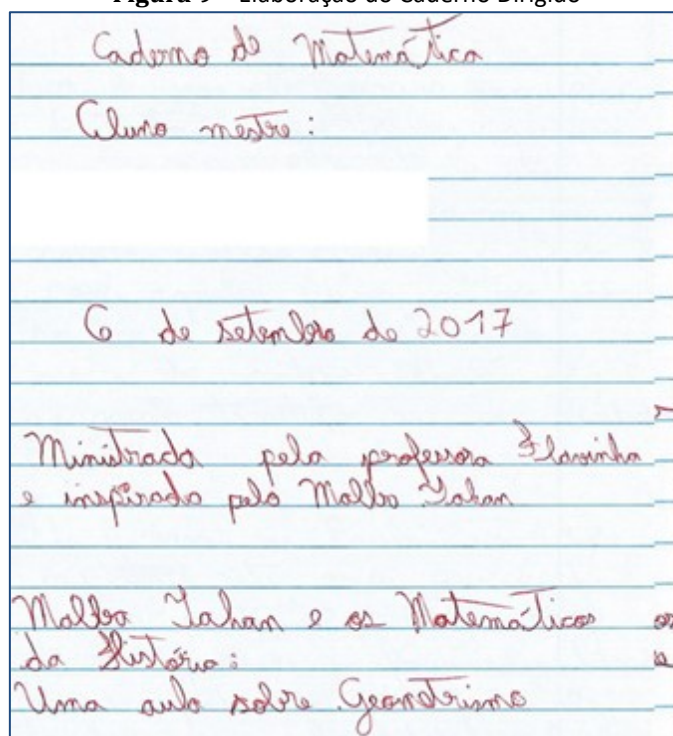 Figura 9 – Elaboração do Caderno Dirigido
Caderno de Matemática
Aluno mestre:
6 de setembro de 2017
Ministrada pela professora Flavinha
e inspirado pelo Malba Tahan
Malba Tahan e os Matemáticos
da História:
Uma aula sobre